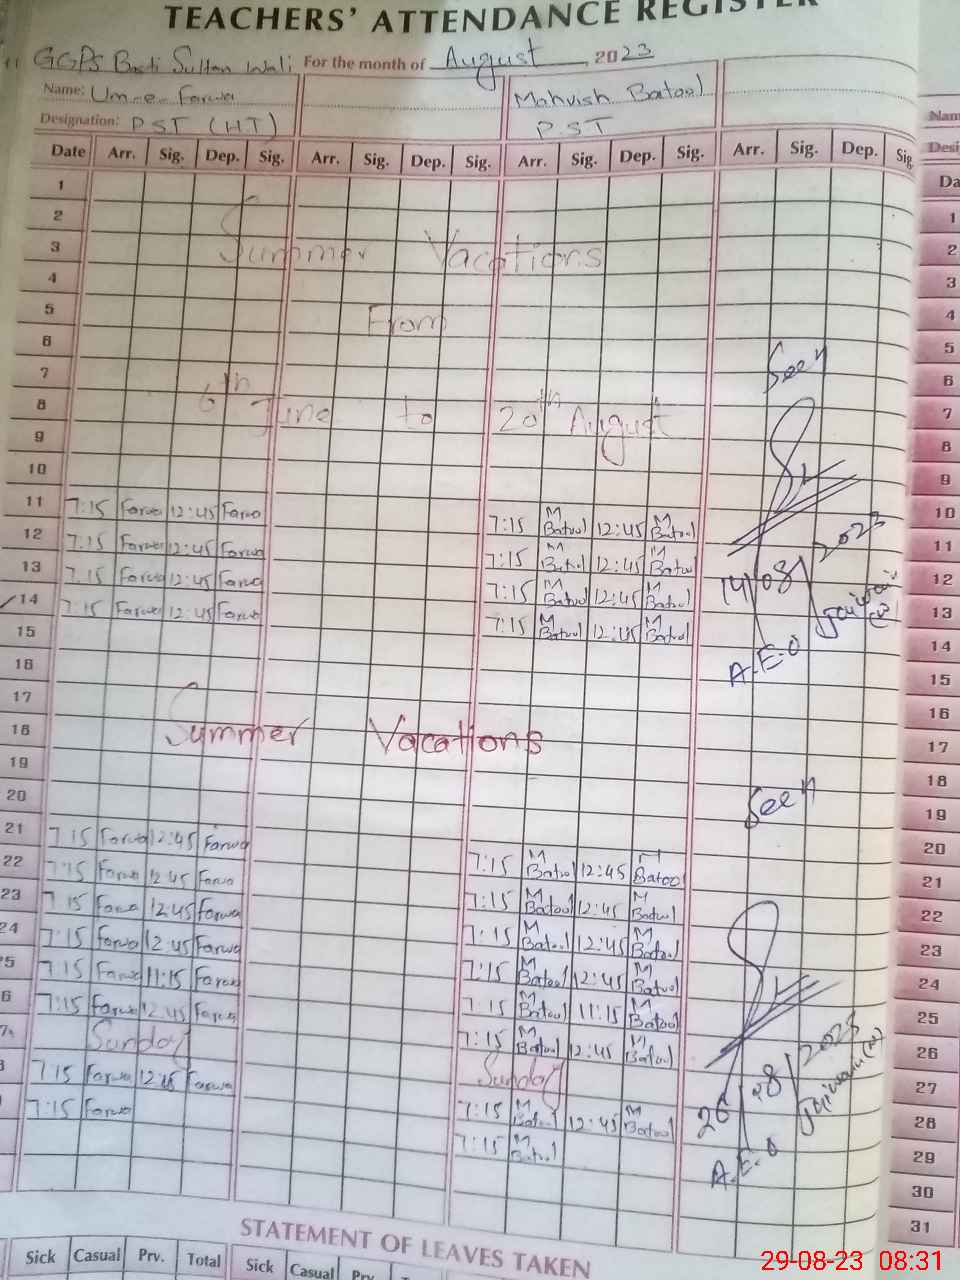 TEACHERS' ATTENDANCE REGISTER
GGPS Basti Sultan Wali For the month of August 2023
Name: Um-e-Farwa Mahvish Batool
Designation: P.S.T (H.T) P.S.T
Date Arr. Sig. Dep. Sig. Arr. Sig. Dep. Sig. Arr. Sig. Dep. Sig. Arr. Sig. Dep. Sig.
1
2
3
4
5
6
7
8
9
10
Summer Vacations
From
6th June to 20th August
Seen
11 7:15 Farwa 12:45 Farwa 7:15 M Batool 12:45 M Batool
12 7:15 Farwa 12:45 Farwa 7:15 M Batool 12:45 M Batool
13 7:15 Farwa 12:45 Farwa 7:15 M Batool 12:45 M Batool
14 7:15 Farwa 12:45 Farwa 7:15 M Batool 12:45 M Batool
14/08/2023
A.E.O
15
16
17
18
19
20
Summer Vacations
Seen
21 7:15 Farwa 12:45 Farwa 7:15 M Batool 12:45 M Batool
22 7:15 Farwa 12:45 Farwa 7:15 M Batool 12:45 M Batool
23 7:15 Farwa 12:45 Farwa 7:15 M Batool 12:45 M Batool
24 7:15 Farwa 12:45 Farwa 7:15 M Batool 12:45 M Batool
5 7:15 Farwa 11:15 Farwa 7:15 M Batool 11:15 M Batool
6 7:15 Farwa 12:45 Farwa 7:15 M Batool 12:45 M Batool
7 Sunday Sunday
7:15 Farwa 12:45 Farwa 7:15 M Batool 12:45 M Batool
7:15 Farwa 7:15 M Batool
A.E.O
STATEMENT OF LEAVES TAKEN
Sick Casual Prv. Total Sick Casual Prv.
Nam
Desi
Da
1
2
3
4
5
6
7
8
9
10
11
12
13
14
15
16
17
18
19
20
21
22
23
24
25
26
27
28
29
30
31
29-08-23 08:31